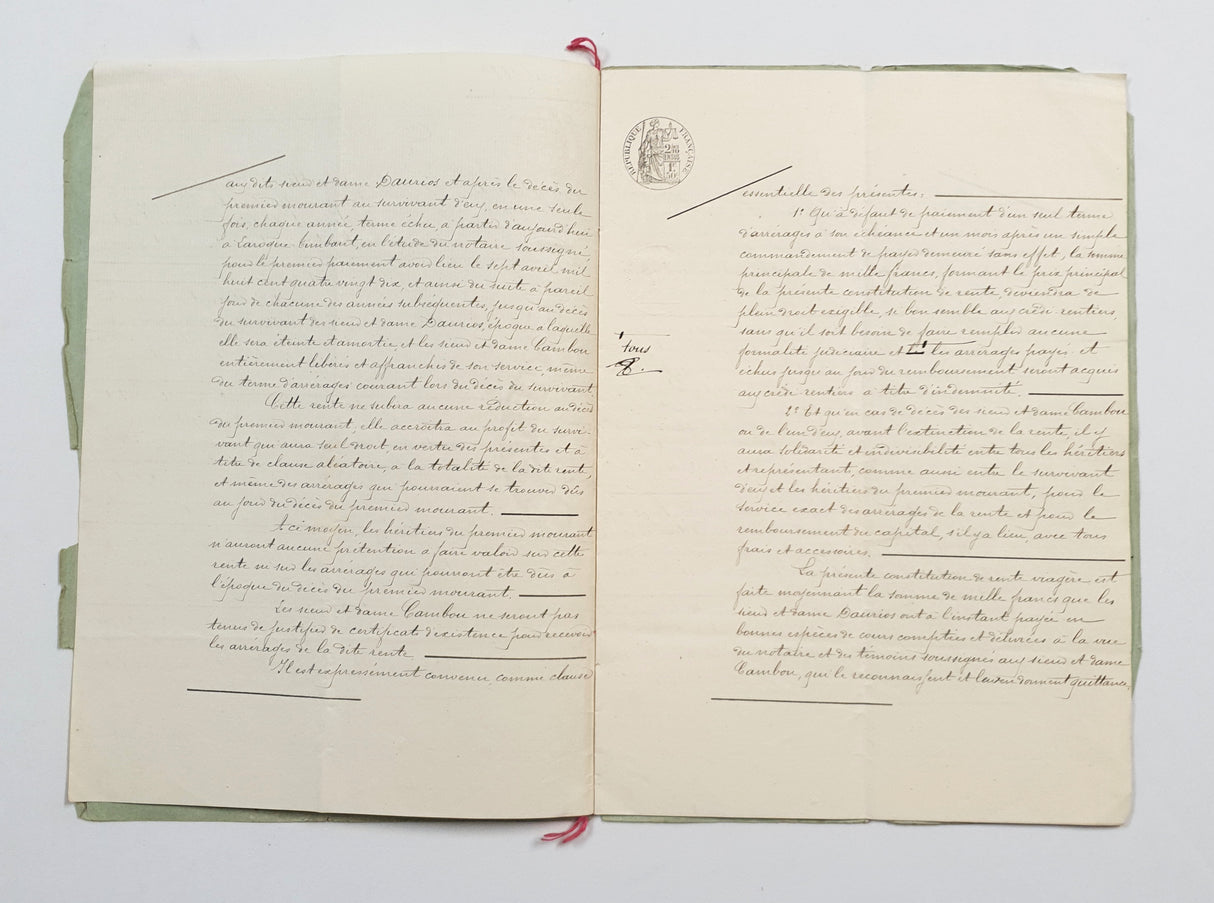 aux dits sieur et dame Daurios et après le décès du
premier mourant au survivant d'eux, en une seule
fois, chaque année, terme échu, à partir d'aujourd'hui
à Laroque-Timbaut, en l'étude du notaire soussigné,
pour le premier paiement avoir lieu le sept avril mil
huit cent quatre vingt dix, et ainsi du suite, à pareil
jour de chacune des années subséquentes, jusqu'au décès
du survivant des sieur et dame Daurios, époque a laquelle
elle sera éteinte et amortie et les sieur et dame Cambou
entièrement libérés et affranchis de son service, même
du terme d'arérages courant lors du décès du survivant
Cette rente ne subira aucune réduction au décès
du premier mourant, elle accroîtra au profit du survi-
vant qui aura seul droit, en vertu des présentes et à
titre de clause aléatoire, a la totalité de la dit rente
et même des arrérages qui pourraient se trouver dûs
au jour du décès du premier mourant.
A ce moyen, les héritiers du premier mourant
n'auront aucune prétention a faire valoir sur cette
rente ni sur les arrérages qui pourront être dûs à
l'époque du décès du premier mourant.
Les sieur et dame Cambou ne seront pas
tenus de justifier de certificats d'existence pour recevoir
les arrérages de la dite rente
Il est expressément convenu, comme clause
RÉPUBLIQUE FRANÇAISE
essentielle des présentes:
1° Qu'à défaut de paiement d'un seul terme
d'arrérages à son échéance et un mois après un simple
commandement de payer demeuré sans effet, la somme
principale de mille francs, formant le prix principal
de la présente constitution de rente, deviendra de
plein droit exigible, si bon semble aux crédi-rentiers,
sans qu'il soit besoin de faire remplir aucune
formalité judiciaire et les arrérages payés et
tous
échus jusqu'au jour du remboursement seront acquis
aux crédi-rentiers à titre d'indemnité.
2° Et qu'en cas de décès des sieur et dame Cambou
ou de l'un d'eux, avant l'extinction de la rente, il y
aura solidarité et indivisibilité entre tous les héritiers
et représentant, comme aussi entre le survivant
d'eux et les héritiers du premier mourant, pour le
service exact des arrérages de la rente et pour le
remboursement du capital, s'il y a lieu, avec tous
frais et accessoires.
La présente constitution de rente viagère est
faite moyennant la somme de mille francs que les
sieur et dame Daurios ont à l'instant payée en
bonnes espèces de cours comptées et délivrées à la vue
du notaire et des témoins soussignés aux sieur et dame
Cambou, qui le reconnaissent et leur en donnent quittance,